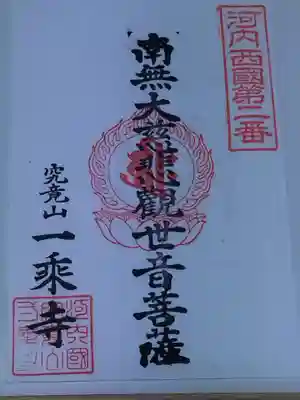 河内西國第二番
南無大慈悲觀世音菩薩
究竟山
一乘寺